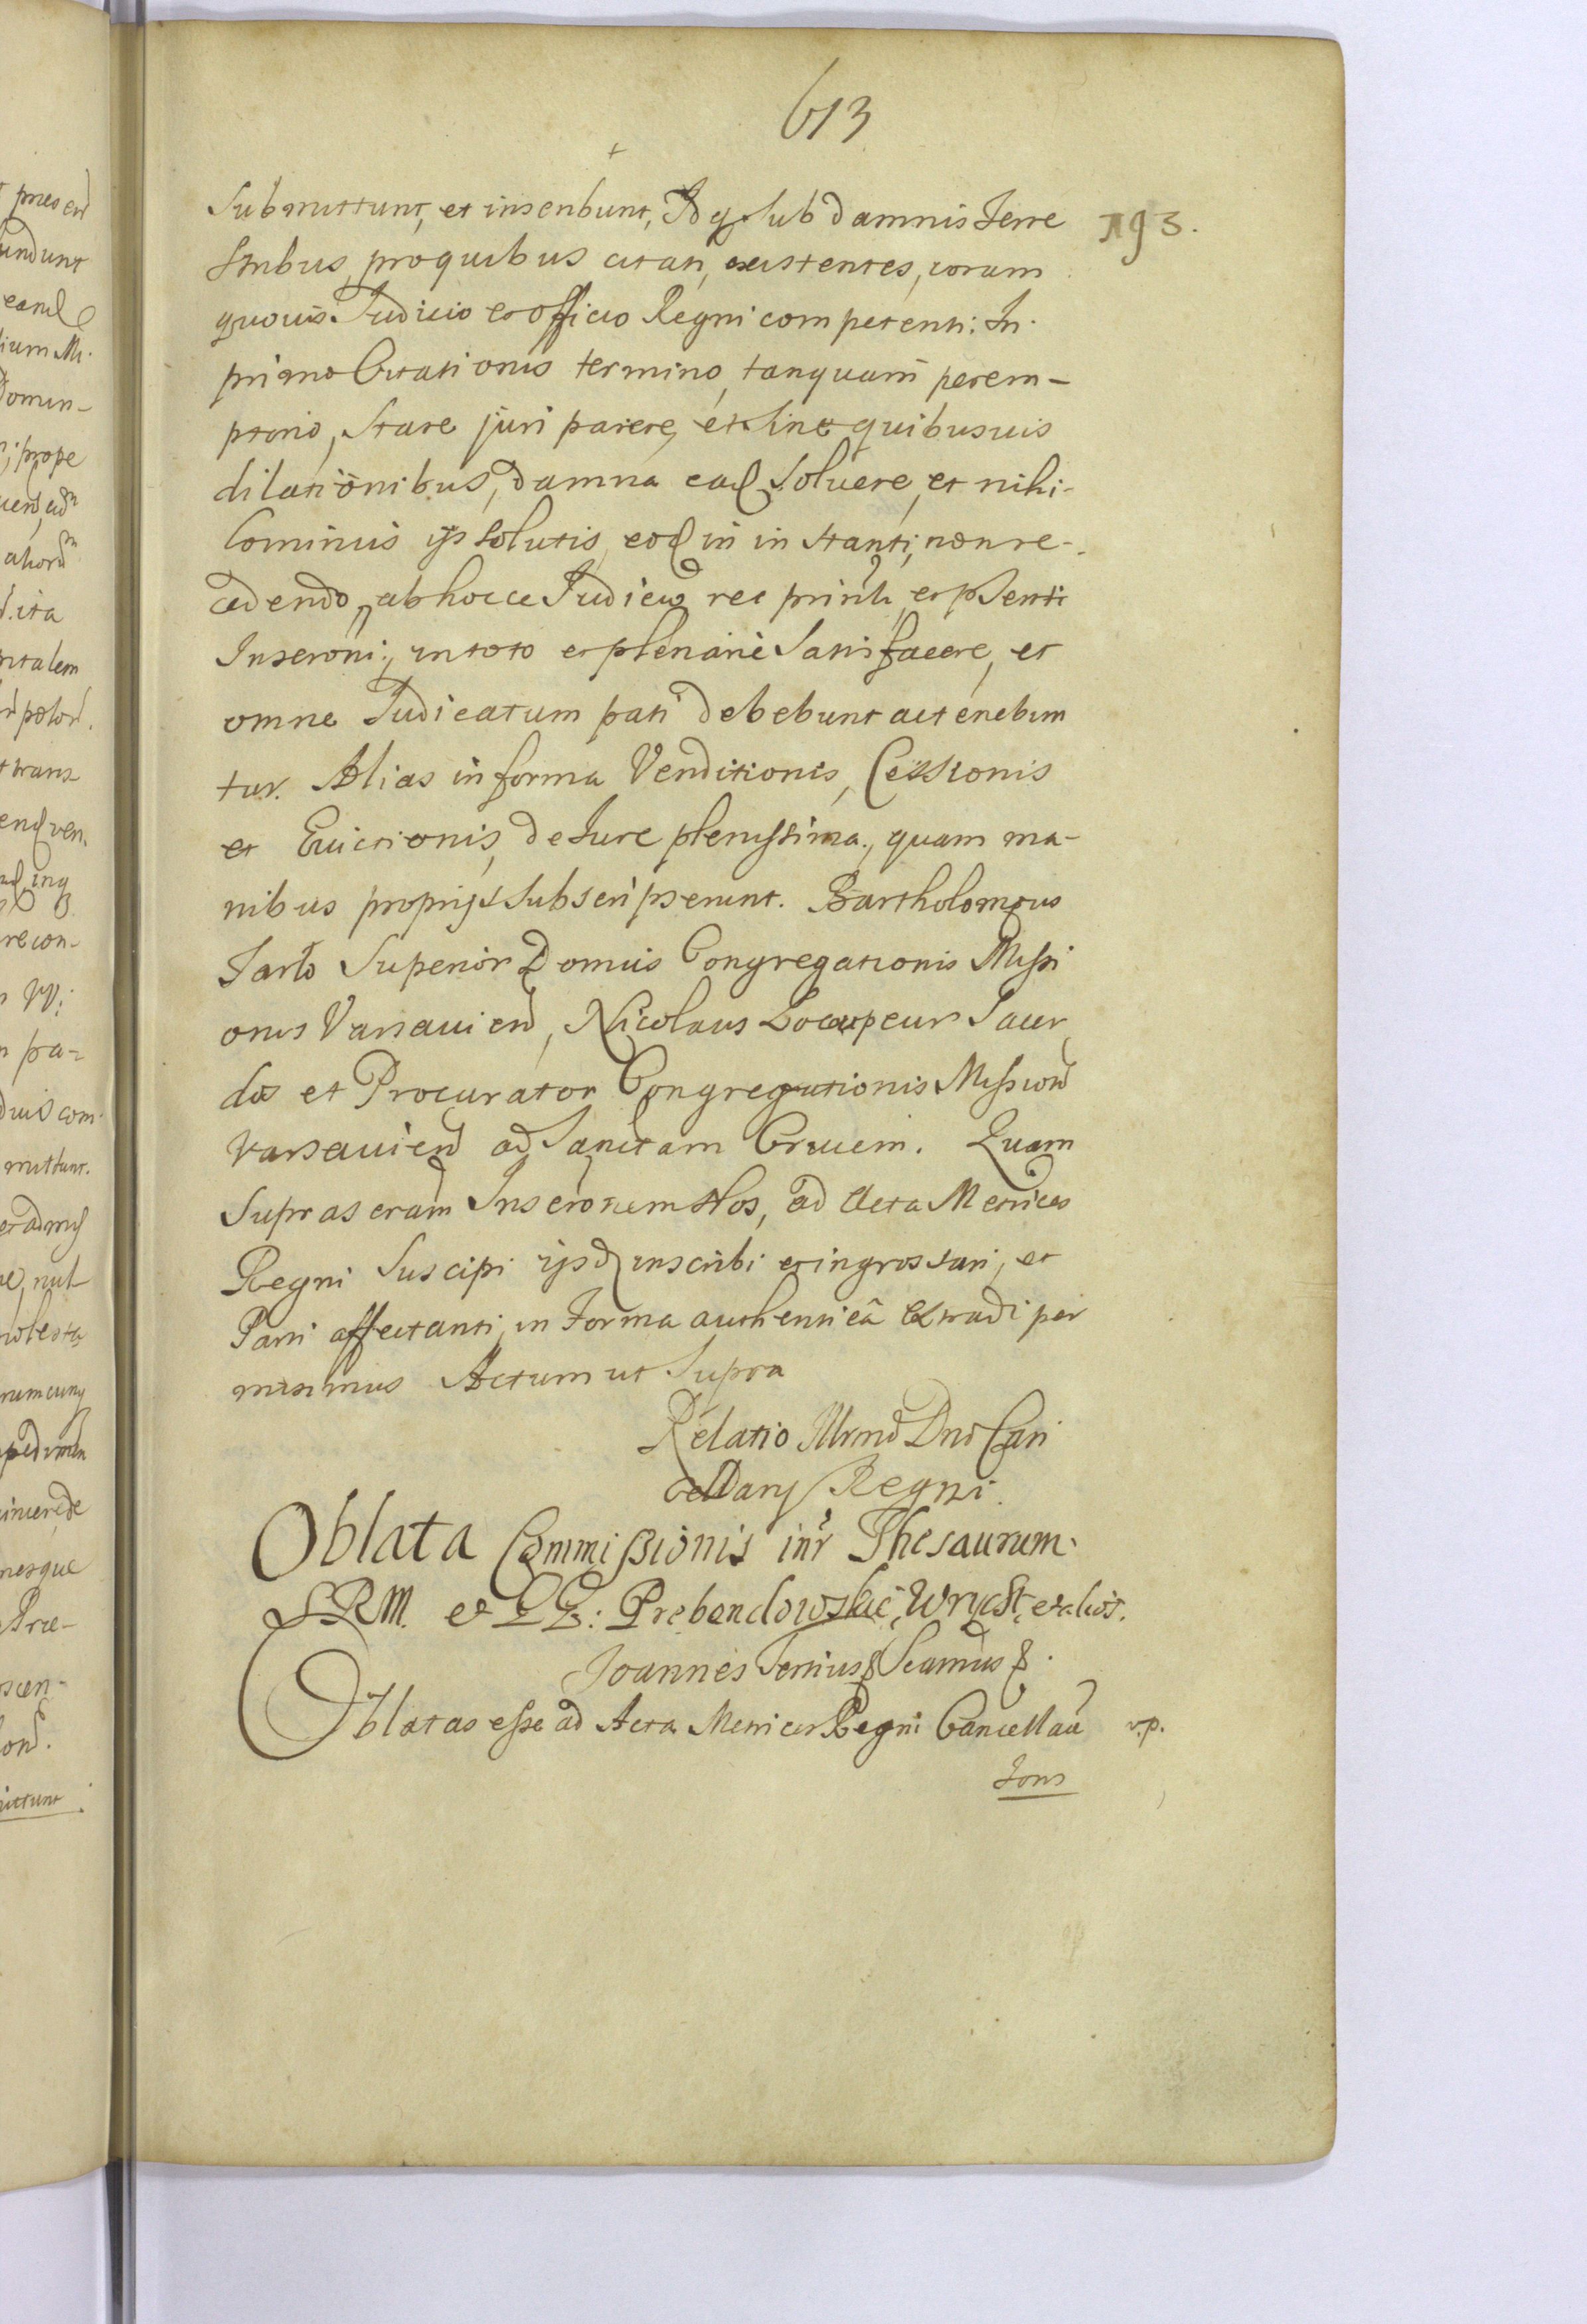 613
193.
Submittunt, et inscribunt, Idq; sub damnis Terre
stribus, pro quibus citati, existentes, coram
quovis Judicio et officio Regni competenti: In
primo Citationis termino, tanquam perem-
ptorio, Stare juri parere, et sine quibusuis
dilationibus, damna ead Soluere, et nihi-
lominus ijs solutis, eod in instanti, non re-
cedendo, ab hocce Judicio, rei principli, et psenti
Inscroni:, in toto et plenarie Satisfacere, et
omne Judicatum pati debebunt ac tenebun
tur. Alias in forma Venditionis, Cessionis
et Evictionis, de Jure plenissima., quam ma-
nibus proprijs subscripserunt. Bartholomeus
Tarlo Superior Domus Congregationis Missi
onis Varsavien, Nicolaus Locupeur Sacer
dos et Procurator Congregationis Mission
Varsavien ad Sanctam Crucem. Quam
supra scram Inscronem Nos, ad Acta Metrices
Regni Suscipi ijsd inscribi et ingrossari, et
Parti affectanti, in Forma authentica Extradi per
misimus Actum ut Supra
Relatio Illrmi Dni Can
cellarij Regni.
Oblata Commissionis intr Thesaurum
SRM. et GG: Prebendowskie, Wrycht, et alios.
Joannes Tertius & Scamus &.
Oblatas esse ad Acta Metrices Regni Cancellariae v.p.
Ions